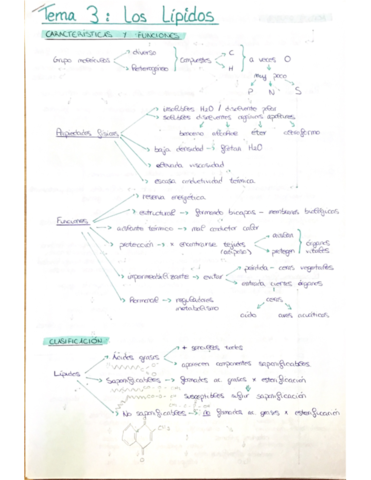 Tema 3: Los Lípidos
CARACTERÍSTICAS Y FUNCIONES
Grupo moléculas
diverso
heterogéneo
Compuestos
C
H
a veces O
muy poco
P N S
Propiedades físicas
insolubles H2O / disolvente polar
solubles disolventes orgánicos apolares
benceno
éter
cloroformo
baja densidad → flotan H2O
elevada viscosidad
escasa conductividad térmica
Funciones
reserva energética
estructural → formando bicapas - membranas biológicas
aislante térmico → mal conductor calor
protección →
tejidos
adiposo
protegen
órganos
vitales
impermeabilizante → evitar
pérdida - ceras vegetales
entrada ciertos órganos
ceras
oído
aves acuáticas
hormonal → reguladoras
metabolismo
CLASIFICACIÓN
Lípidos
Ácidos grasos
+ sencillos todos
aparecen componentes saponificables
Saponificables → formados ac. grasos x esterificación
susceptibles sufrir saponificación
No saponificables → No formados ac. grasos x esterificación